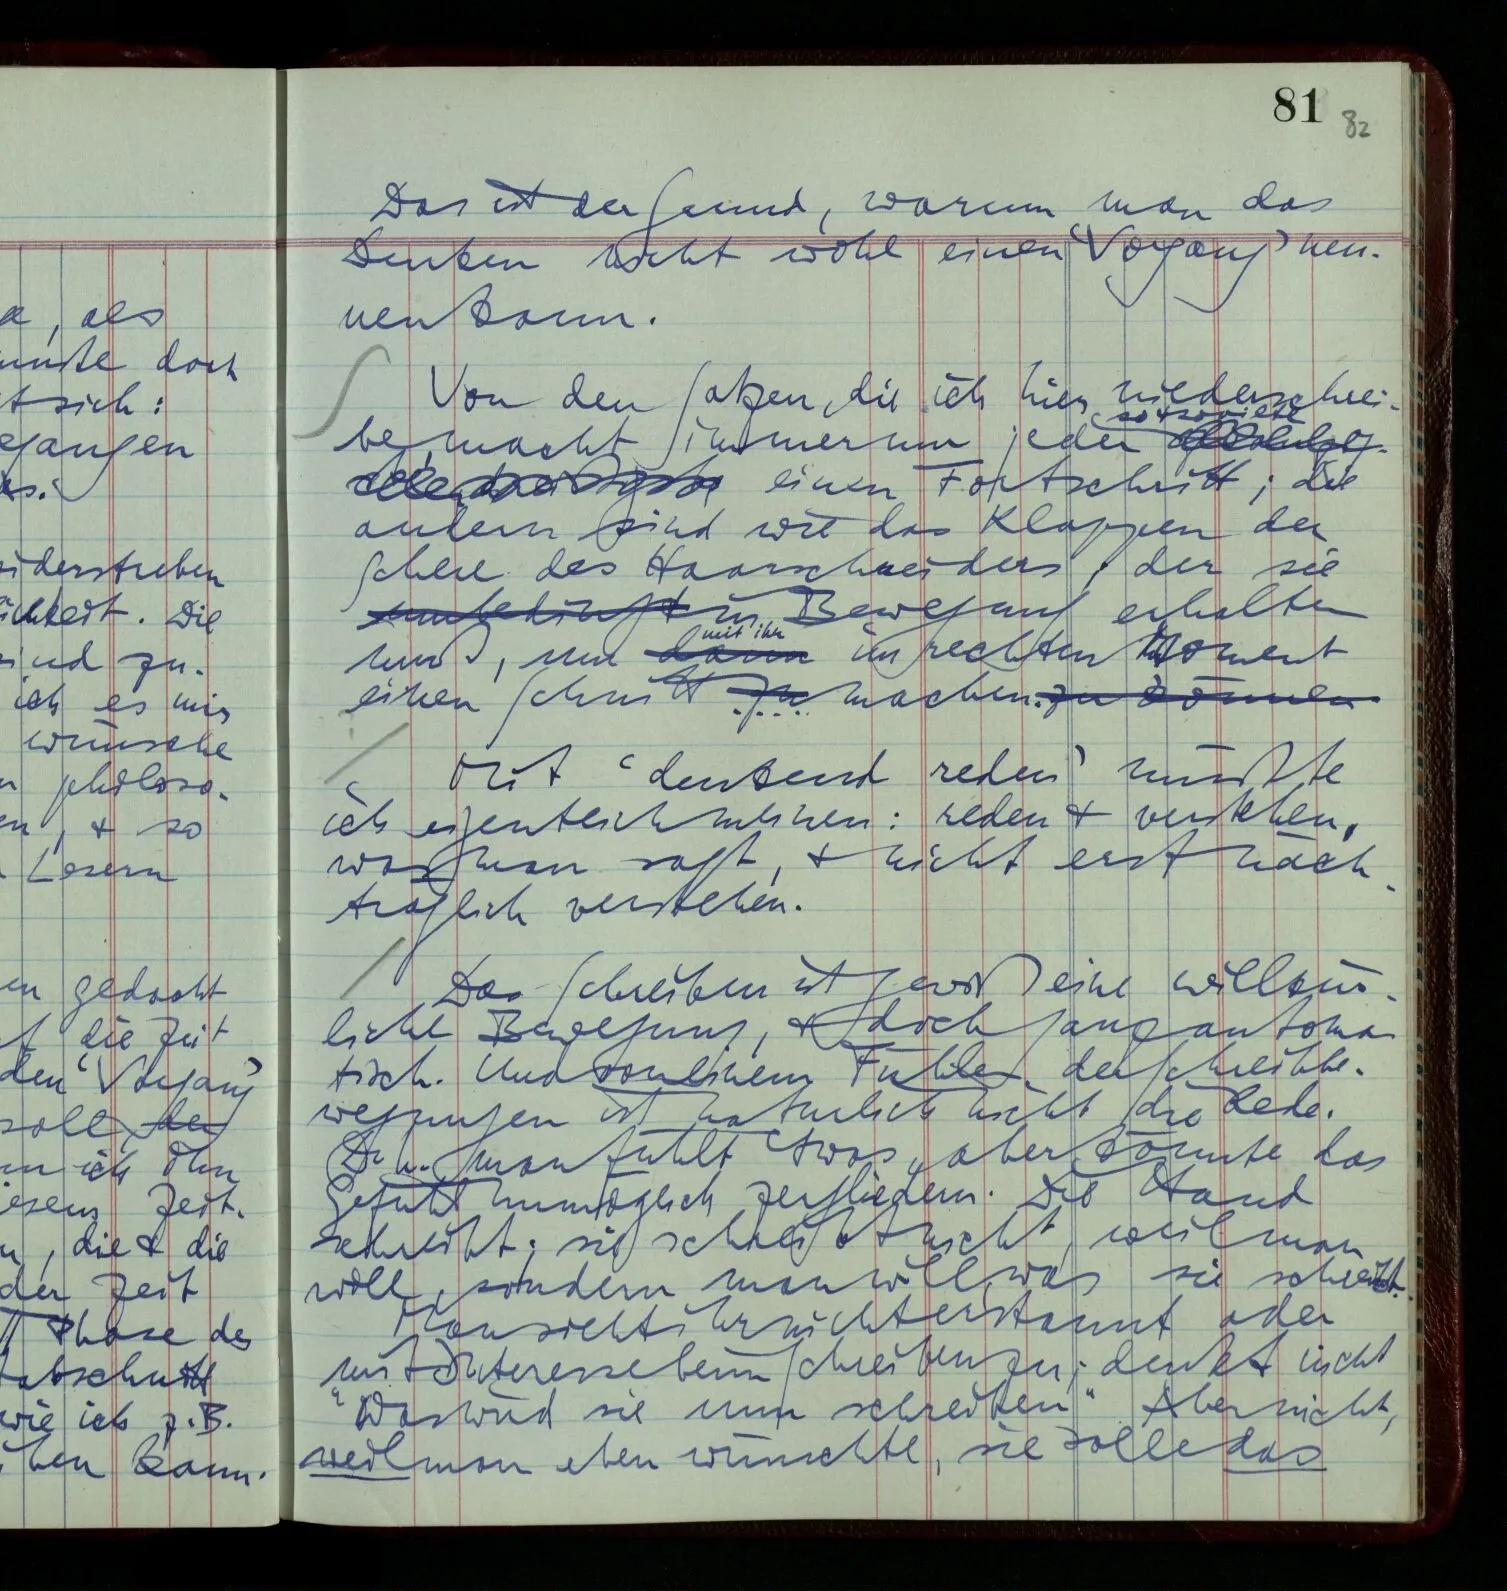 81 82
Das ist der Grund, warum man das
Denken nicht wohl einen ‘Vorgang’ nen-
nen kann.
Von den Sätzen, die ich hier niederschrei-
be, macht immer nur jeder
so & sovielte
einen Fortschritt; die
andern sind wie das Klappen der
Schere des Haarschneiders, der sie
unbedingt in Bewegung erhalten
muß, um dann im rechten Moment
mit ihr
einen Schnitt zu machen. zu können
Mit ‘denkend reden’ müßte
ich eigentlich meinen: reden & verstehen,
was man sagt, & nicht erst nach-
träglich verstehen.
Das Schreiben ist gewiß eine willkür-
liche Bewegung, & doch ganz automa-
tisch. Und von einem Fühlen der Schreibbe-
wegungen ist natürlich nicht die Rede.
D.h. man fühlt etwas, aber könnte das
Gefühl unmöglich zergliedern. Die Hand
schreibt; sie schreibt nicht, weil man
will, sondern man will, was sie schreibt.
Man sieht ihr nicht erstaunt oder
mit Interesse beim Schreiben zu; denkt nicht
“Was wird sie nun schreiben” Aber nicht,
weil man eben wünschte, sie solle das
a, als
doch
t sich:
egangen
iderstreben
ichkeit. Die
sind zu-
ich es mir
wünsche
n philoso-
en, & so
Lesern
en gedacht
die Zeit
den ‘Vorgang’
soll, der
nn ich ihn
iesem Zeit-
n, die & die
der Zeit
Phase des
tabschnitt
wie ich z.B.
iben kann.